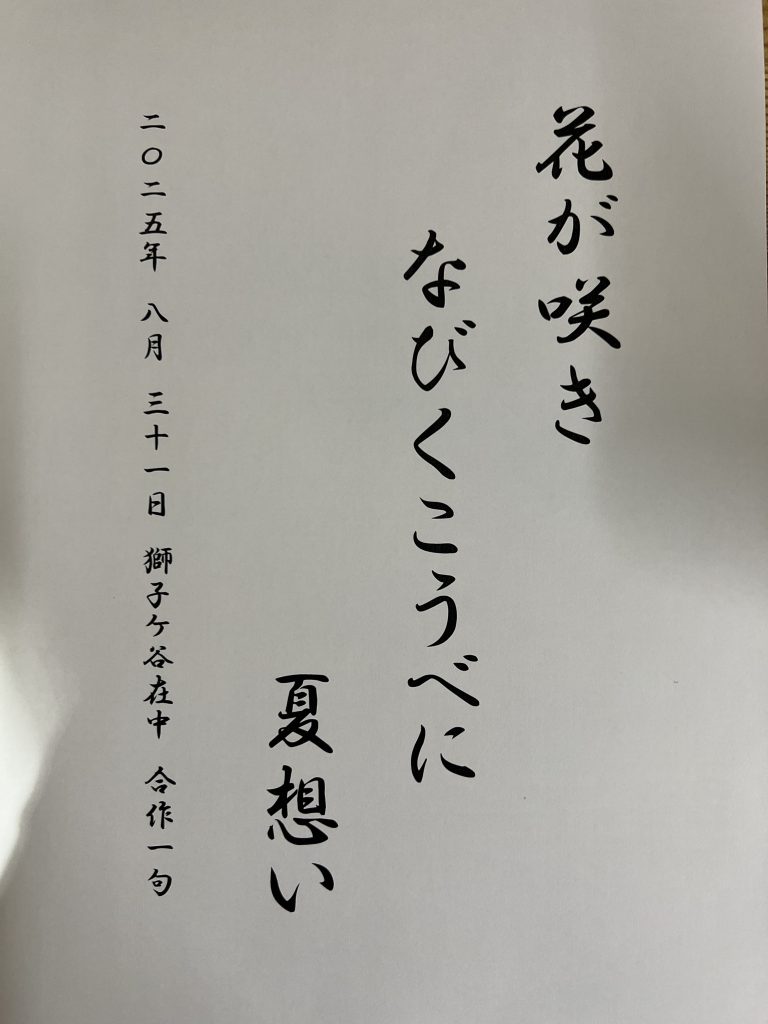 花が咲き
なびくこうべに
夏想い
二〇二五年 八月 三十一日 獅子ケ谷在中 合作一句